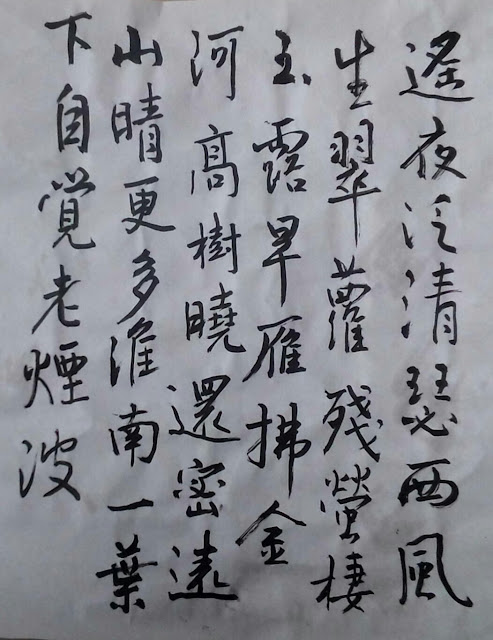 遙夜泛清瑟西風
生翠蘿殘螢棲
玉露早雁拂金
河高樹曉還密遠
山晴更多淮南一葉
下自覺老煙波